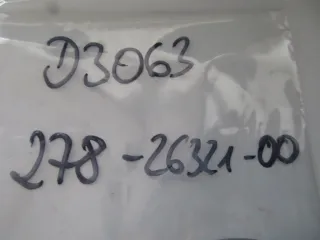 D3063
278-26321-00